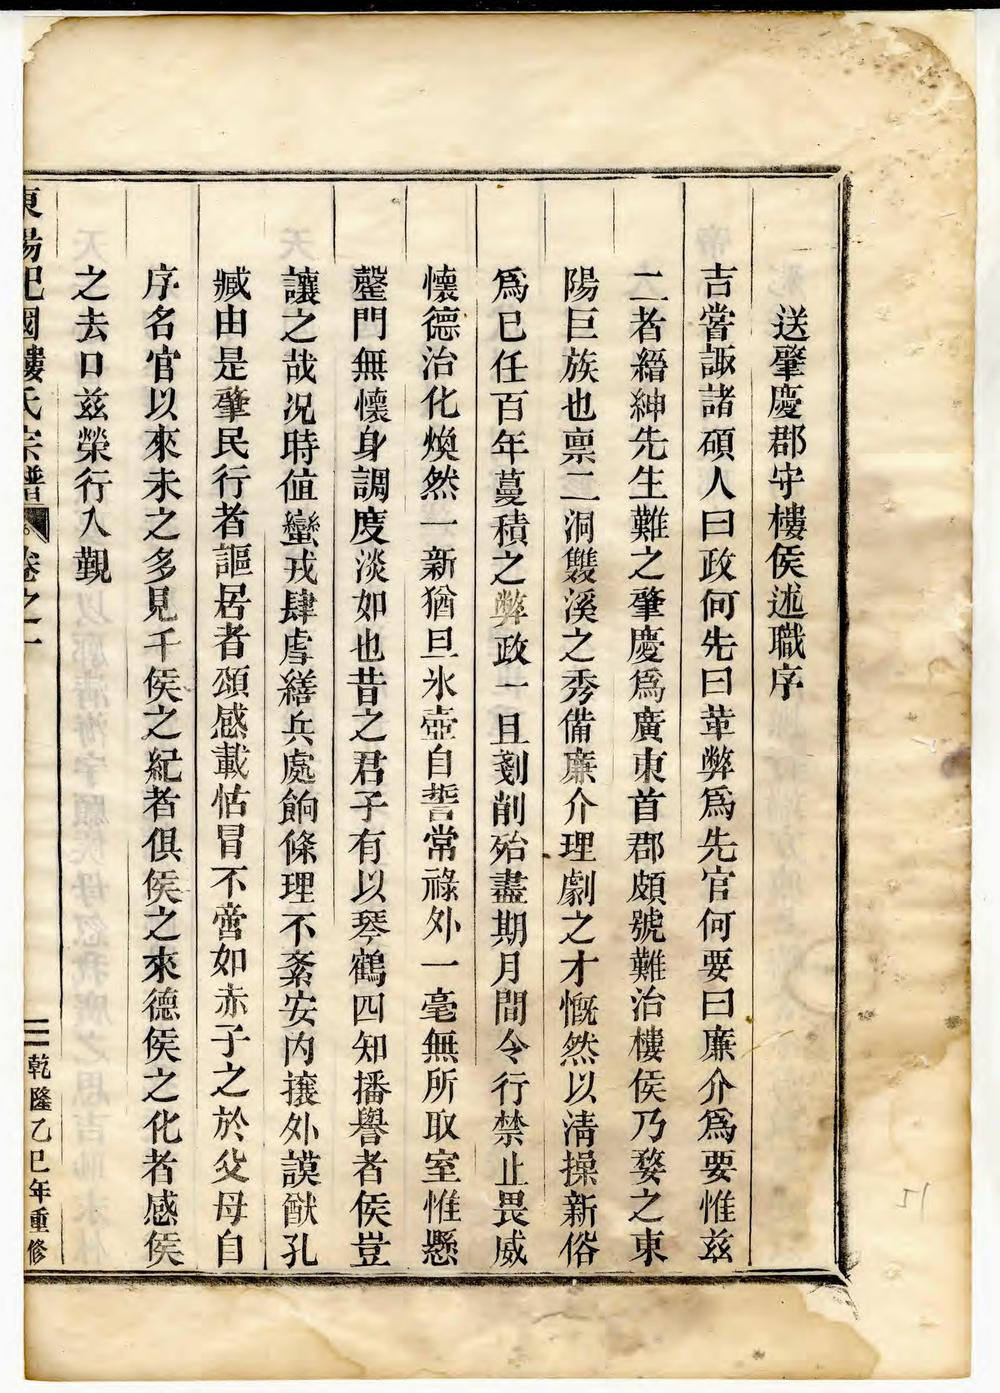 送肇慶郡守樓侯述職序
吉嘗諏諸碩人曰政何先曰革弊爲先官何要曰廉介爲要惟兹
二者縉紳先生難之肇慶爲廣東首郡頗號難治樓侯乃婺之東
陽巨族也禀二洞雙溪之秀備廉介理劇之才慨然以清操新俗
爲已任百年蔓積之弊政一旦剗削殆盡期月間令行禁止畏威
懷德治化煥然一新猶且氷壺自誓常祿外一毫無所取室惟懸
罄門無懷身調度淡如也昔之君子有以琴鶴四知播譽者侯豈
讓之哉况時值蠻戎肆虐繕兵處餉條理不紊安内攘外謨猷孔
臧由是肇民行者謳居者頌感載怙冒不啻如赤子之於父母自
序名官以來未之多見千侯之紀者俱侯之來德侯之化者感侯
之去口兹榮行入覲
東陽杞國樓氏宗譜 卷之一
三 乾隆乙巳年重修